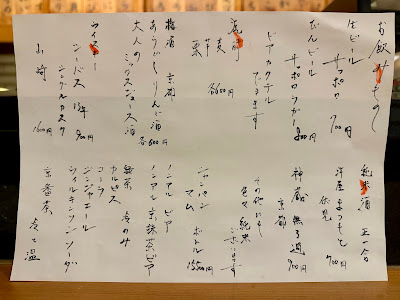 お飲みもの
生ビール サッポロ 700円
びんビール サッポロラガー 800円
ビアカクテル できます
焼酎 麦 芋 栗 各600円
梅酒 京都
あらごしりんご酒
大人のミックスジュース酒 各600円
ウイスキー
シーバス 12年 900円
シングルカスク
山崎 1600円
純米酒 正一合
澤屋まつもと 伏見 700円
神蔵 無ろ過 京都 900円
その他にも 色々 純米 ございます
シャンパン マム ボトル 15,000円
ノンアルビア
ノンアル京抹茶ビア
煎茶 煮のみ
カルピス
コーラ
ジンジャエール
ウィルキンソンソーダ
京番茶 冷 温